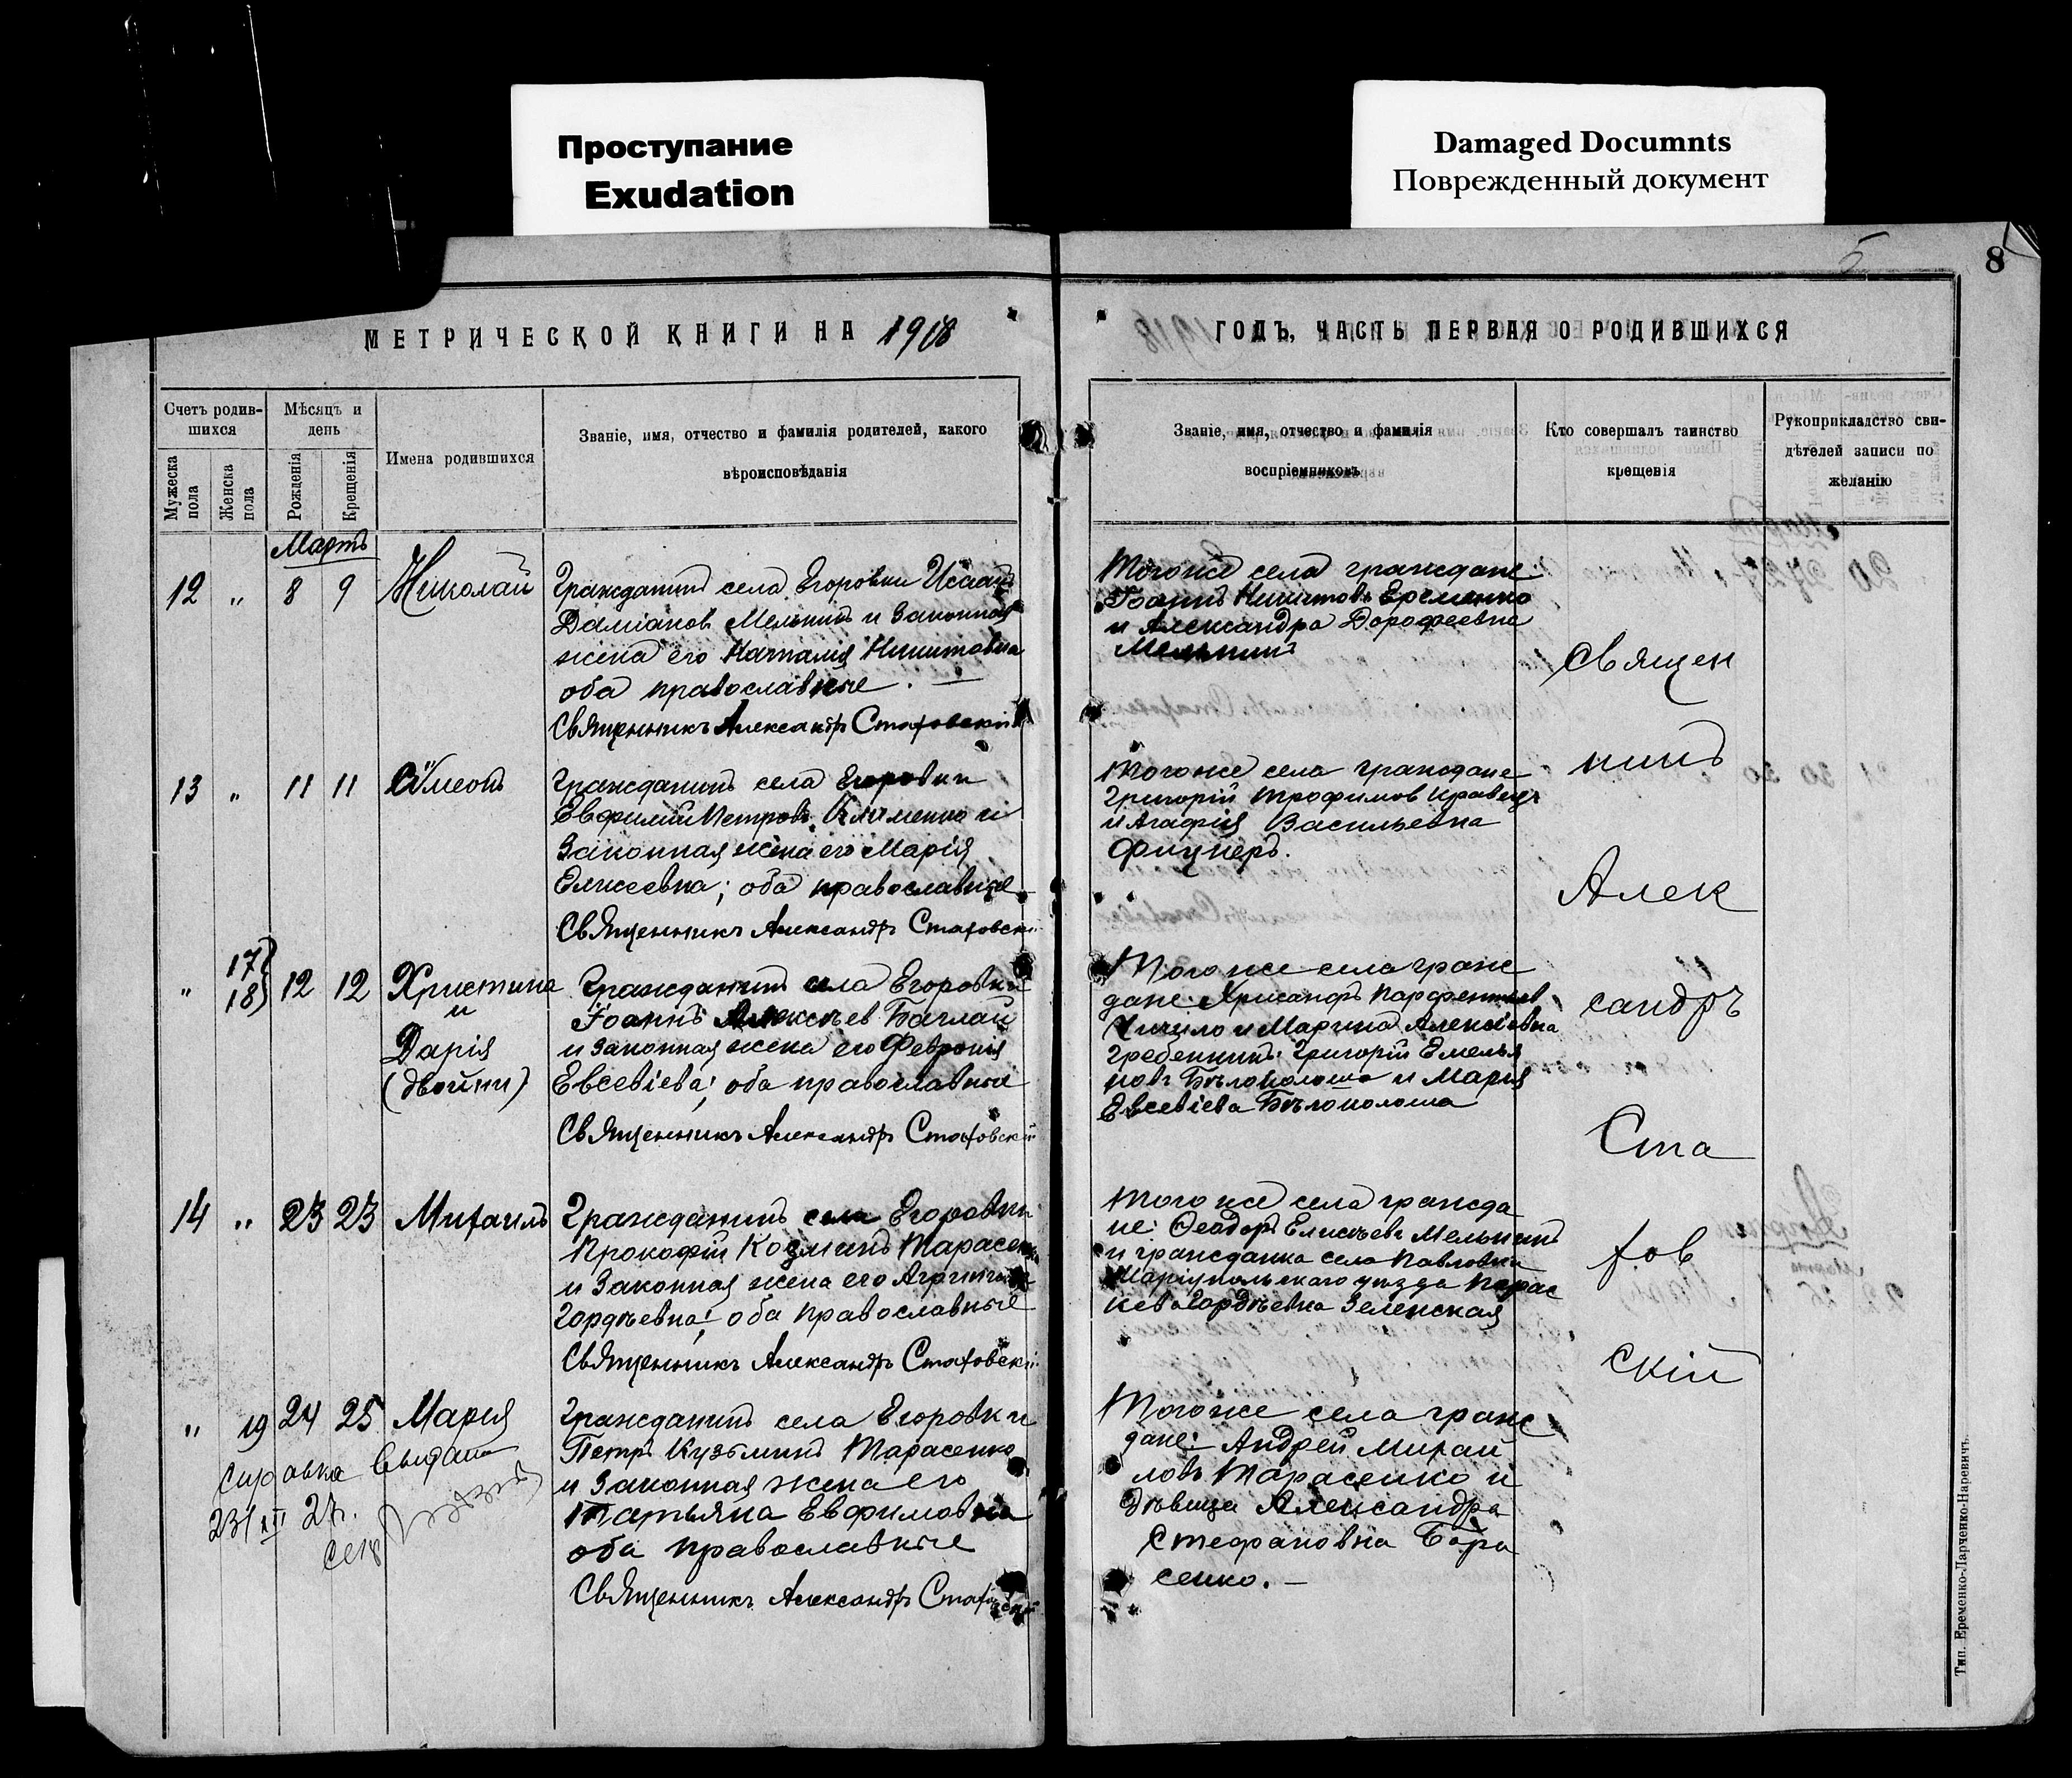 Проступание
Exudation
Damaged Documnts
Поврежденный документ
5
8
МЕТРИЧЕСКОЙ КНИГИ НА 1918
ГОДЪ, ЧАСТЬ ПЕРВАЯ О РОДИВШИХСЯ
Счетъ родив-
шихся
Мужеска
пола
Женска
пола
Мѣсяцъ и
день
Рожденія
Крещенія
Имена родившихся
Званіе, имя, отчество и фамилія родителей, какого
вѣроисповѣданія
Званіе, имя, отчество и фамилія
воспріемниковъ
Кто совершалъ таинство
крещенія
Рукоприкладство сви-
дѣтелей записи по
желанію
Мартъ
12 " 8 9 Николай
Гражданинъ села Егоровки Исаай
Даміановъ Мельникъ и законная
жена его Наталія Никитовна
оба православные.
Священникъ Александръ Стаховскій
Того же села граждане:
Іоаннъ Никитовъ Еременко
и Александра Дорофеевна
Мельникъ
13 " 11 11 Сѵмеонъ
Гражданинъ села Егоровки
Евфимій Петровъ Клименко и
законная жена его Марія
Елисеевна; оба православные
Священникъ Александръ Стаховскій
Того же села граждане
Григорій Трофимов Кравецъ
и Агафія Васильевна
Фицнеръ.
" 17 18 12 12 Христина
и
Дарія
(двойни)
Гражданинъ села Егоровки
Іоаннъ Алексѣев Баглай
и законная жена его Февронія
Евсевіева; оба православные
Священникъ Александръ Стаховскій
Того же села граж
дане: Хрисанфъ Парфентіев
и Марина Алексіевна
Гребенникъ; Григорій Емелья
новъ Бѣлоколоша и Марія
Евсевіева Бѣлоколоша
14 " 23 23 Михаилъ
Гражданинъ села Егоровки
Прокофій Козминъ Тарасенко
и законная жена его
Гордѣевна; оба православные
Священникъ Александръ Стаховскій
Того же села гражда
не: Ѳеодоръ Елисѣевъ Мельникъ
и гражданка села Павловки
Маріупольскаго уѣзда Парас
кева Гордѣевна Зеленская
" 19 24 25 Марія
Гражданинъ села Егоровки
Петръ Кузьминъ Тарасенко
и законная жена его
Татьяна Евфимовна
оба православные
Священникъ Александръ Стаховскій
Того же села граж
дане: Андрей Михаи
ловъ Тарасенко и
дѣвица Александра
Стефановна Бора
сенко. —
Справка выдана
23/XII 27.
Священ
никъ
Алек
сандръ
Ста
хов
скій
Тип. Еременко-Ларченко-Наревичъ.